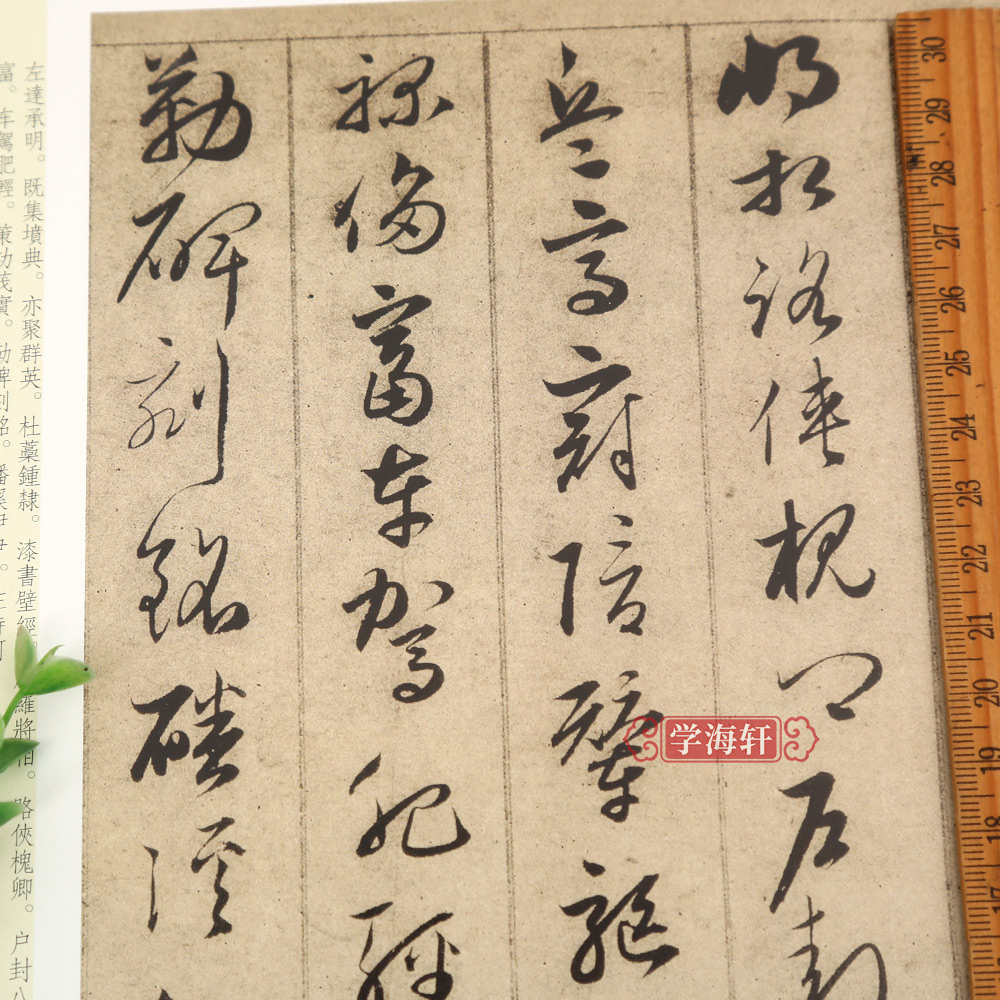 將相路俠槐卿户封
兵高冠陪輦驅
祿侈富車駕肥輕
勒碑刻銘磻溪
左達承明。既集墳典。亦聚群英。杜藁鍾隸。漆書壁經。羅將相。路俠槐卿。户封八
富。车駕肥輕。策功茂實。勒碑刻銘。磻溪伊尹。
学海轩
30
29
28
27
26
25
24
23
22
21
20
19
18
17